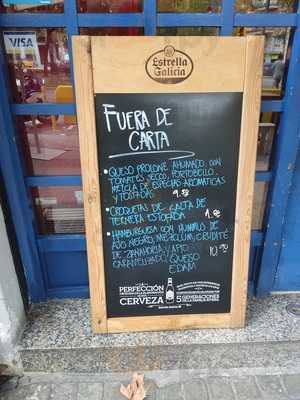 VISA
Estrella
Galicia
FUERA DE
CARTA
• QUESO PROLONE AHUMADO, CON
TOMATES SECO, PORTOBELLO,
MEZCLA DE ESPECIAS AROMATICAS
Y TOSTADAS
• CROQUETAS DE GALTA DE
TERNERA ESTOFADA
• HAMBURGUESA CON HUMMUS DE
AJO NEGRO,
DE ZANAHORIA Y APIO
CARAMELIZADO, QUESO
EDAM
PERFECCIÓN
CERVEZA
5 GENERACIONES